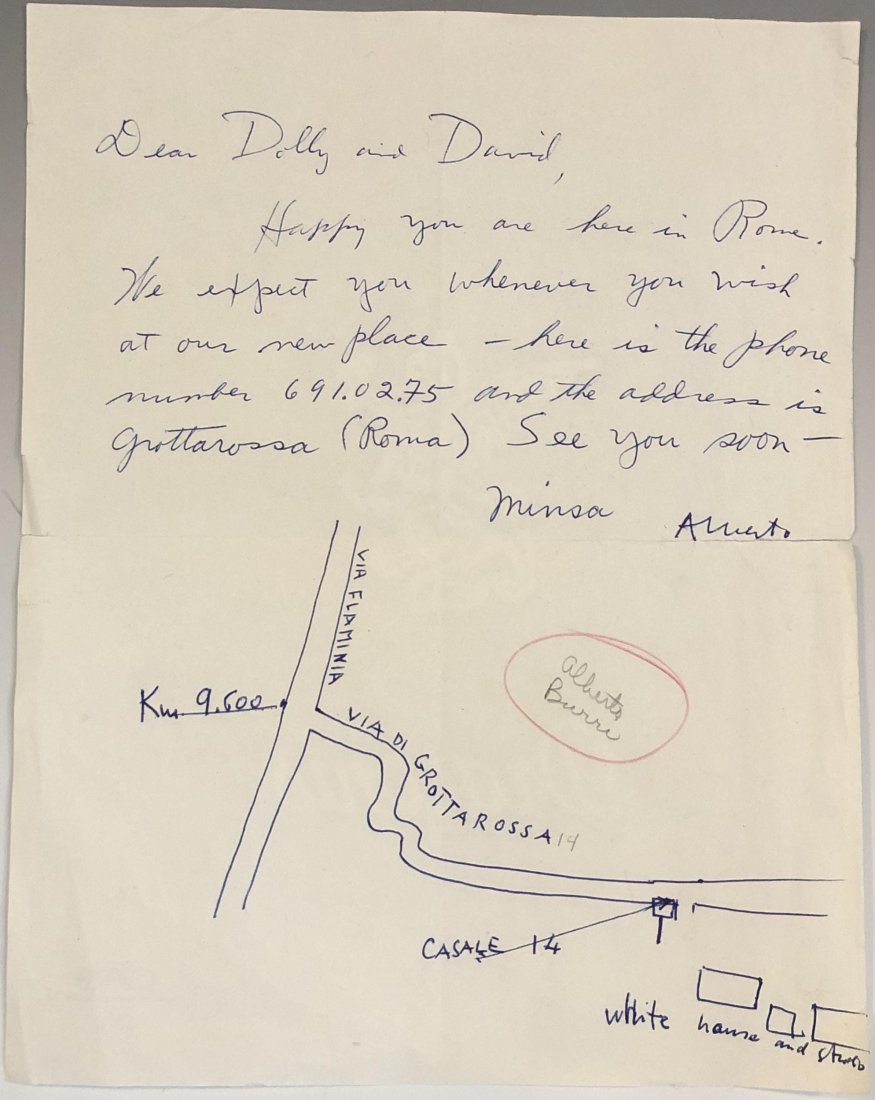 Dear Dolly and David,
Happy you are here in Rome.
We expect you whenever you wish
at our new place – here is the phone
number 691.02.75 and the address is
Grottarossa (Roma) See you soon –
Minsa Alberto
VIA FLAMINIA
Km 9.600
VIA DI GROTTAROSSA 14
Alberto
Burri
CASALE 14
white house and studio